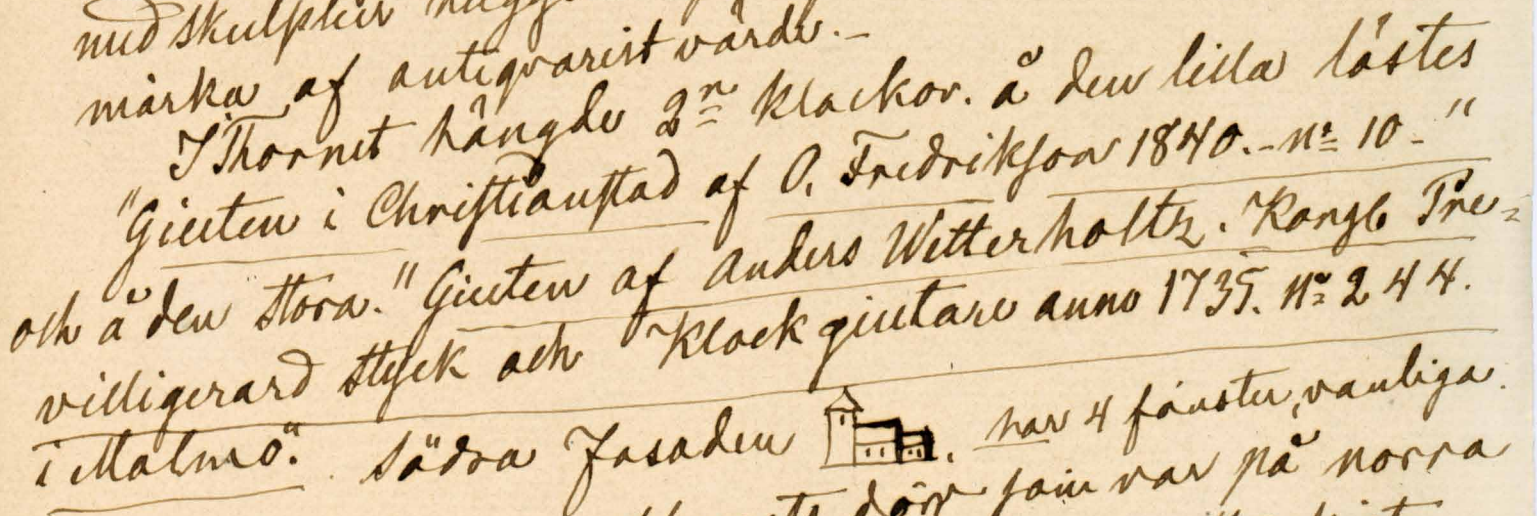 med skulptur
märka af antiqvariskt värde. –
I Thornet hängde 2ne klockor. å den lilla lästes
"Giuten i Christianstad af O. Fredrikson 1840. – No 10 – "
och å den stora. "Giuten af Anders Wetterholtz. Kongl Pre=
villigerard styck och Klockgiutare anno 1735. No 244.
i Malmö". Södra Fasaden . har 4 fönster, vanliga.
dörr som var på norra